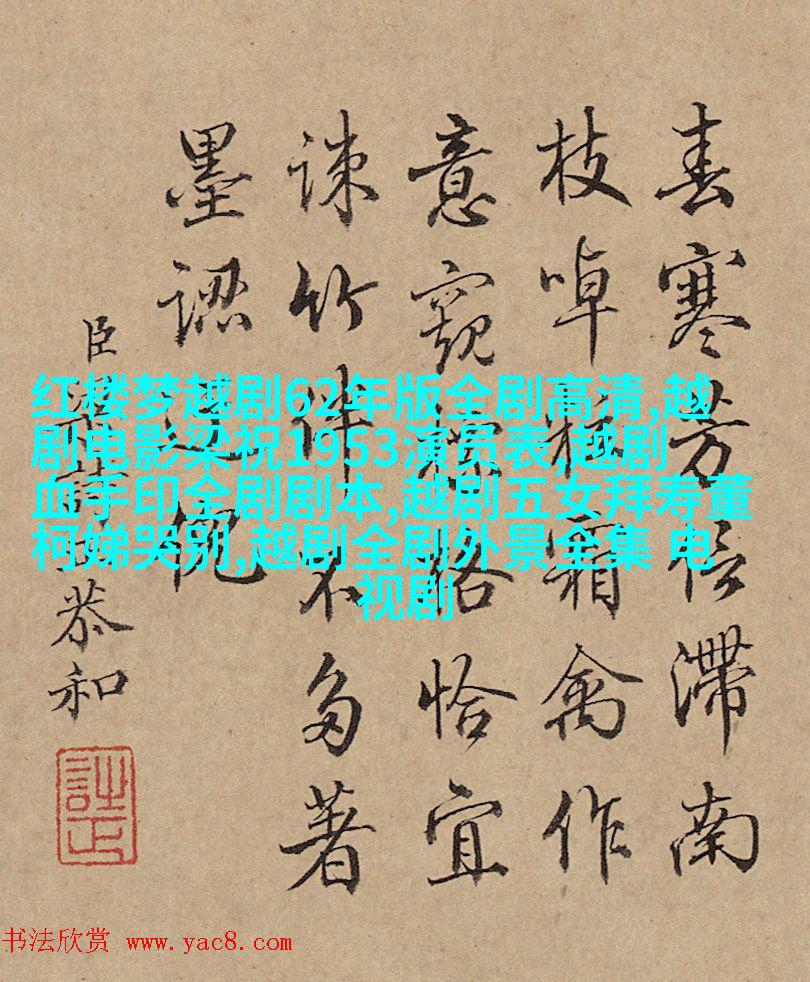 春寒芳信滯南
枝啅粒霜禽作
意窺路恰宜
疎竹伴不多著
墨認迂倪
臣梁詩正恭和
红楼梦越剧62年版全剧高清,越
剧电影梁祝1953演员表,越剧
血手印全剧剧本,越剧五女拜寿董
柯娣哭别,越剧全剧外景全集 电
视剧
书法欣赏 www.yac8.com